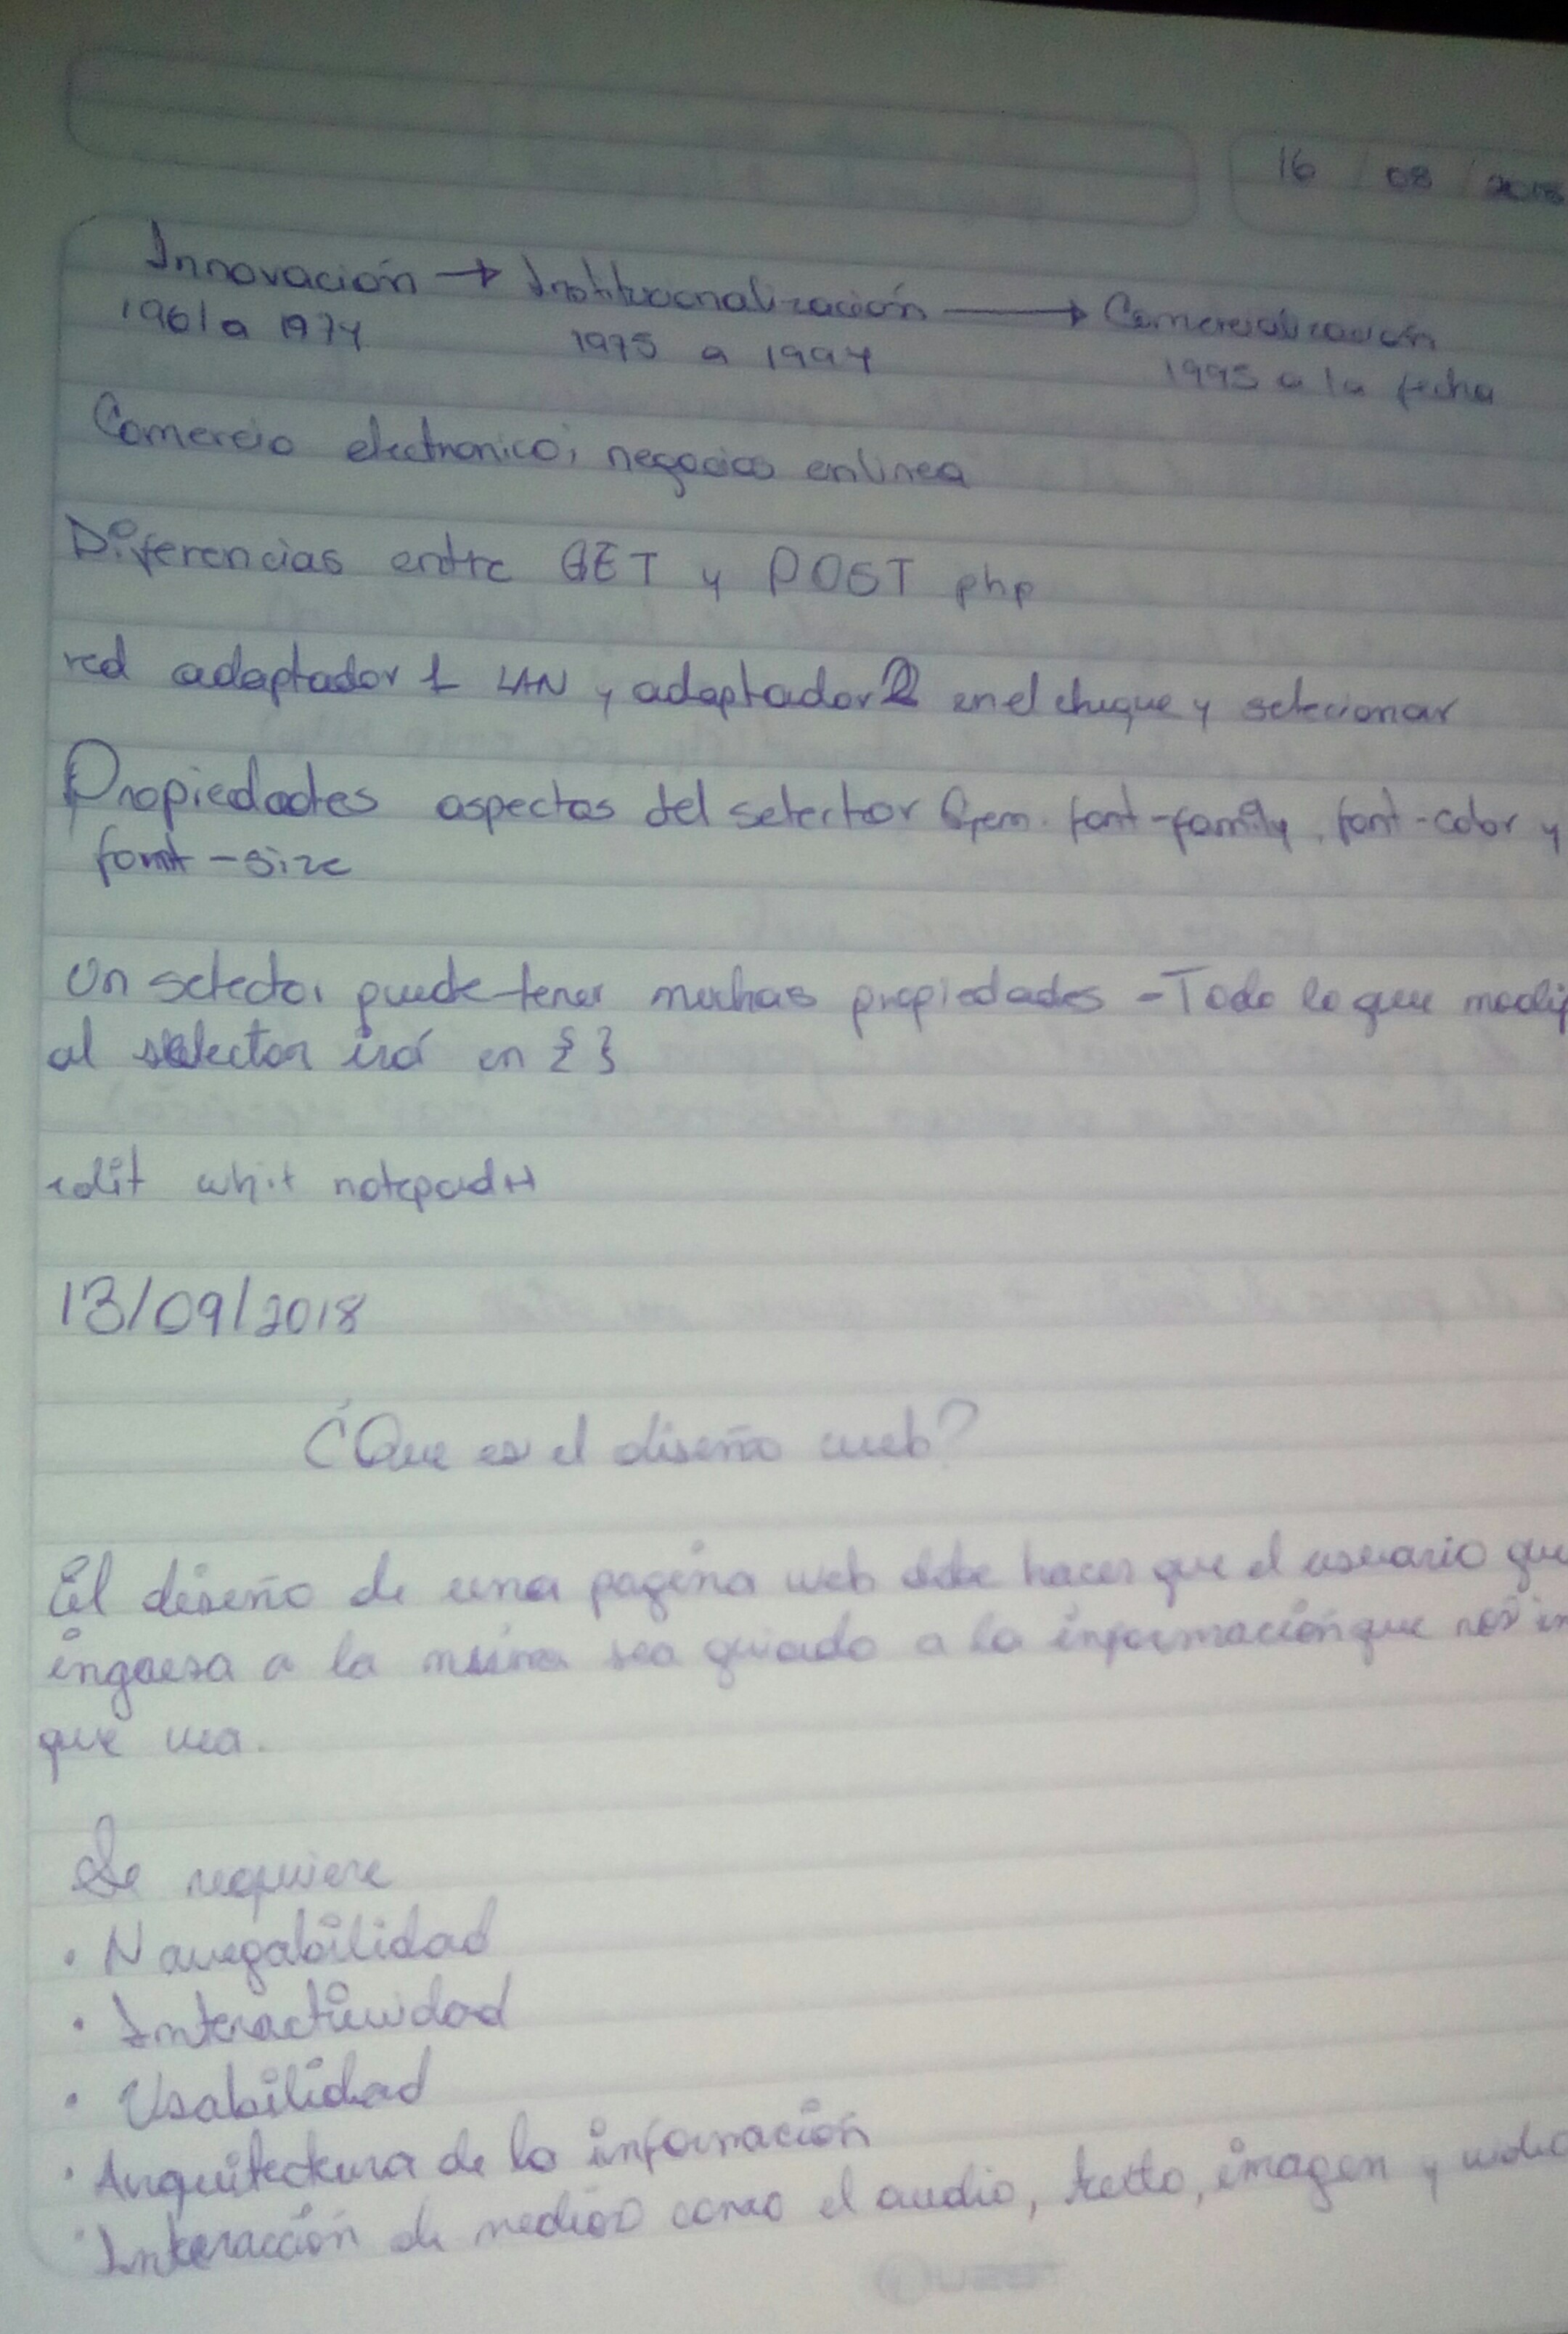 16 / 08 / 2018
Innovación → Institucionalización → Comercialización
1961 a 1974 1975 a 1994 1995 a la fecha
Comercio electronico; negocios en linea
Diferencias entre GET y POST php
red adaptador 1 LAN y adaptador 2 en el cheque y selecionar
Propiedades aspectos del selector Ejem. font-family, font-color y
font-size
Un selector puede tener muchas propiedades - Todo lo que modif
al selector irá en { }
edit whit notepad++
13/09/2018
¿Que es el diseño web?
El diseño de una pagina web debe hacer que el usuario que
ingresa a la misma sea guiado a la información que nos in
que vea.
Se requiere
• Navegabilidad
• Interactividad
• Usabilidad
• Arquitectura de la información
• Interacción de medios como el audio, texto, imagen y video